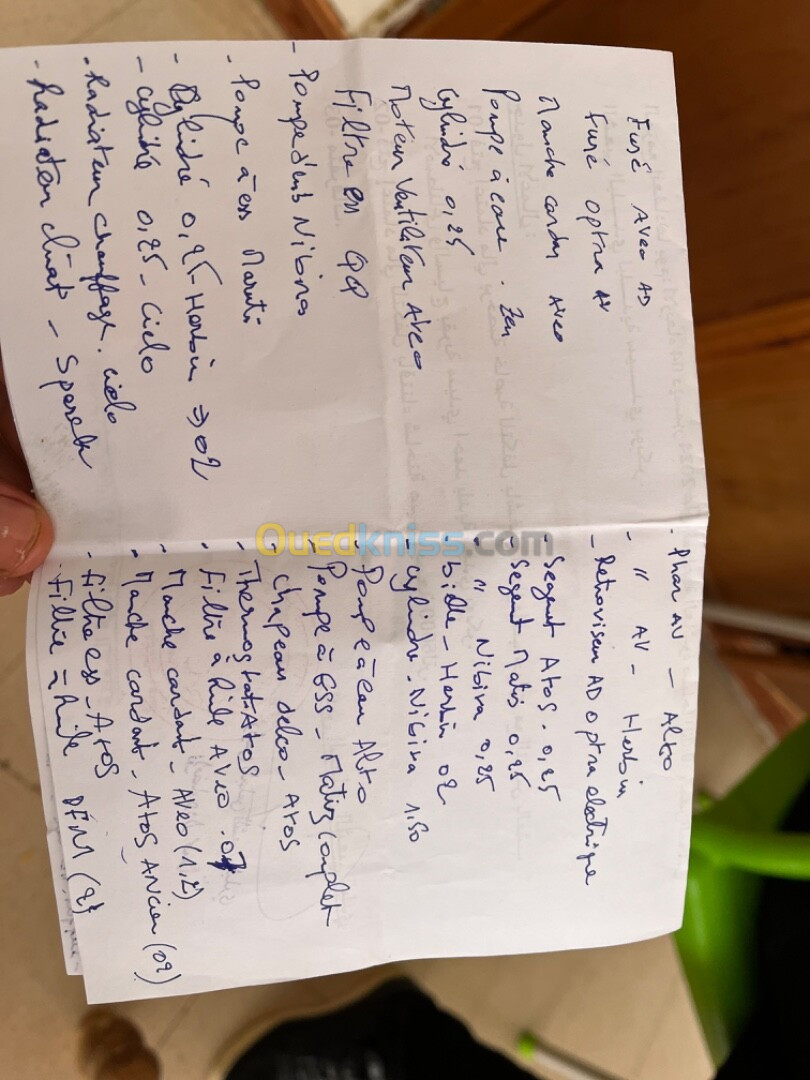 Fusé Aveo AD
Fusé optra AV
Manche cardan Aveo
Pompe à eau . Zen
Cylindré 0,25
Moteur Ventilateur Aveo
Filtre ess QQ
- Pompe d'ess Nibira
. Pompe à ess Maruti
- Cylidré 0,25 - Herbin => 02
- Cylidré 0,25 - Cielo
. Radiateur chauffage . cielo
. Radiateur climat - Spark
. Phar AV - Alto
- " AV - Herbin
- Retroviseur AD optra electrique
- Segment Atos . 0,25
- Segent Matis 0,25
- " Nibira 0,25
. bielle - Herbin 02
- Cylindre - Nibira 1.50
- Pompe à eau Alto
- Pompe à ESS - Matiz Complet
. chapeau delco - Atos
- Thermostat Atos
. Filtre à huile Aveo . 07
. Manche cardant - Aveo (1.2)
. Manche cardant - Atos Ancien (02)
. Filtre ess - Atos
. Filtre à huile DFM (2)
Ouedkniss.com